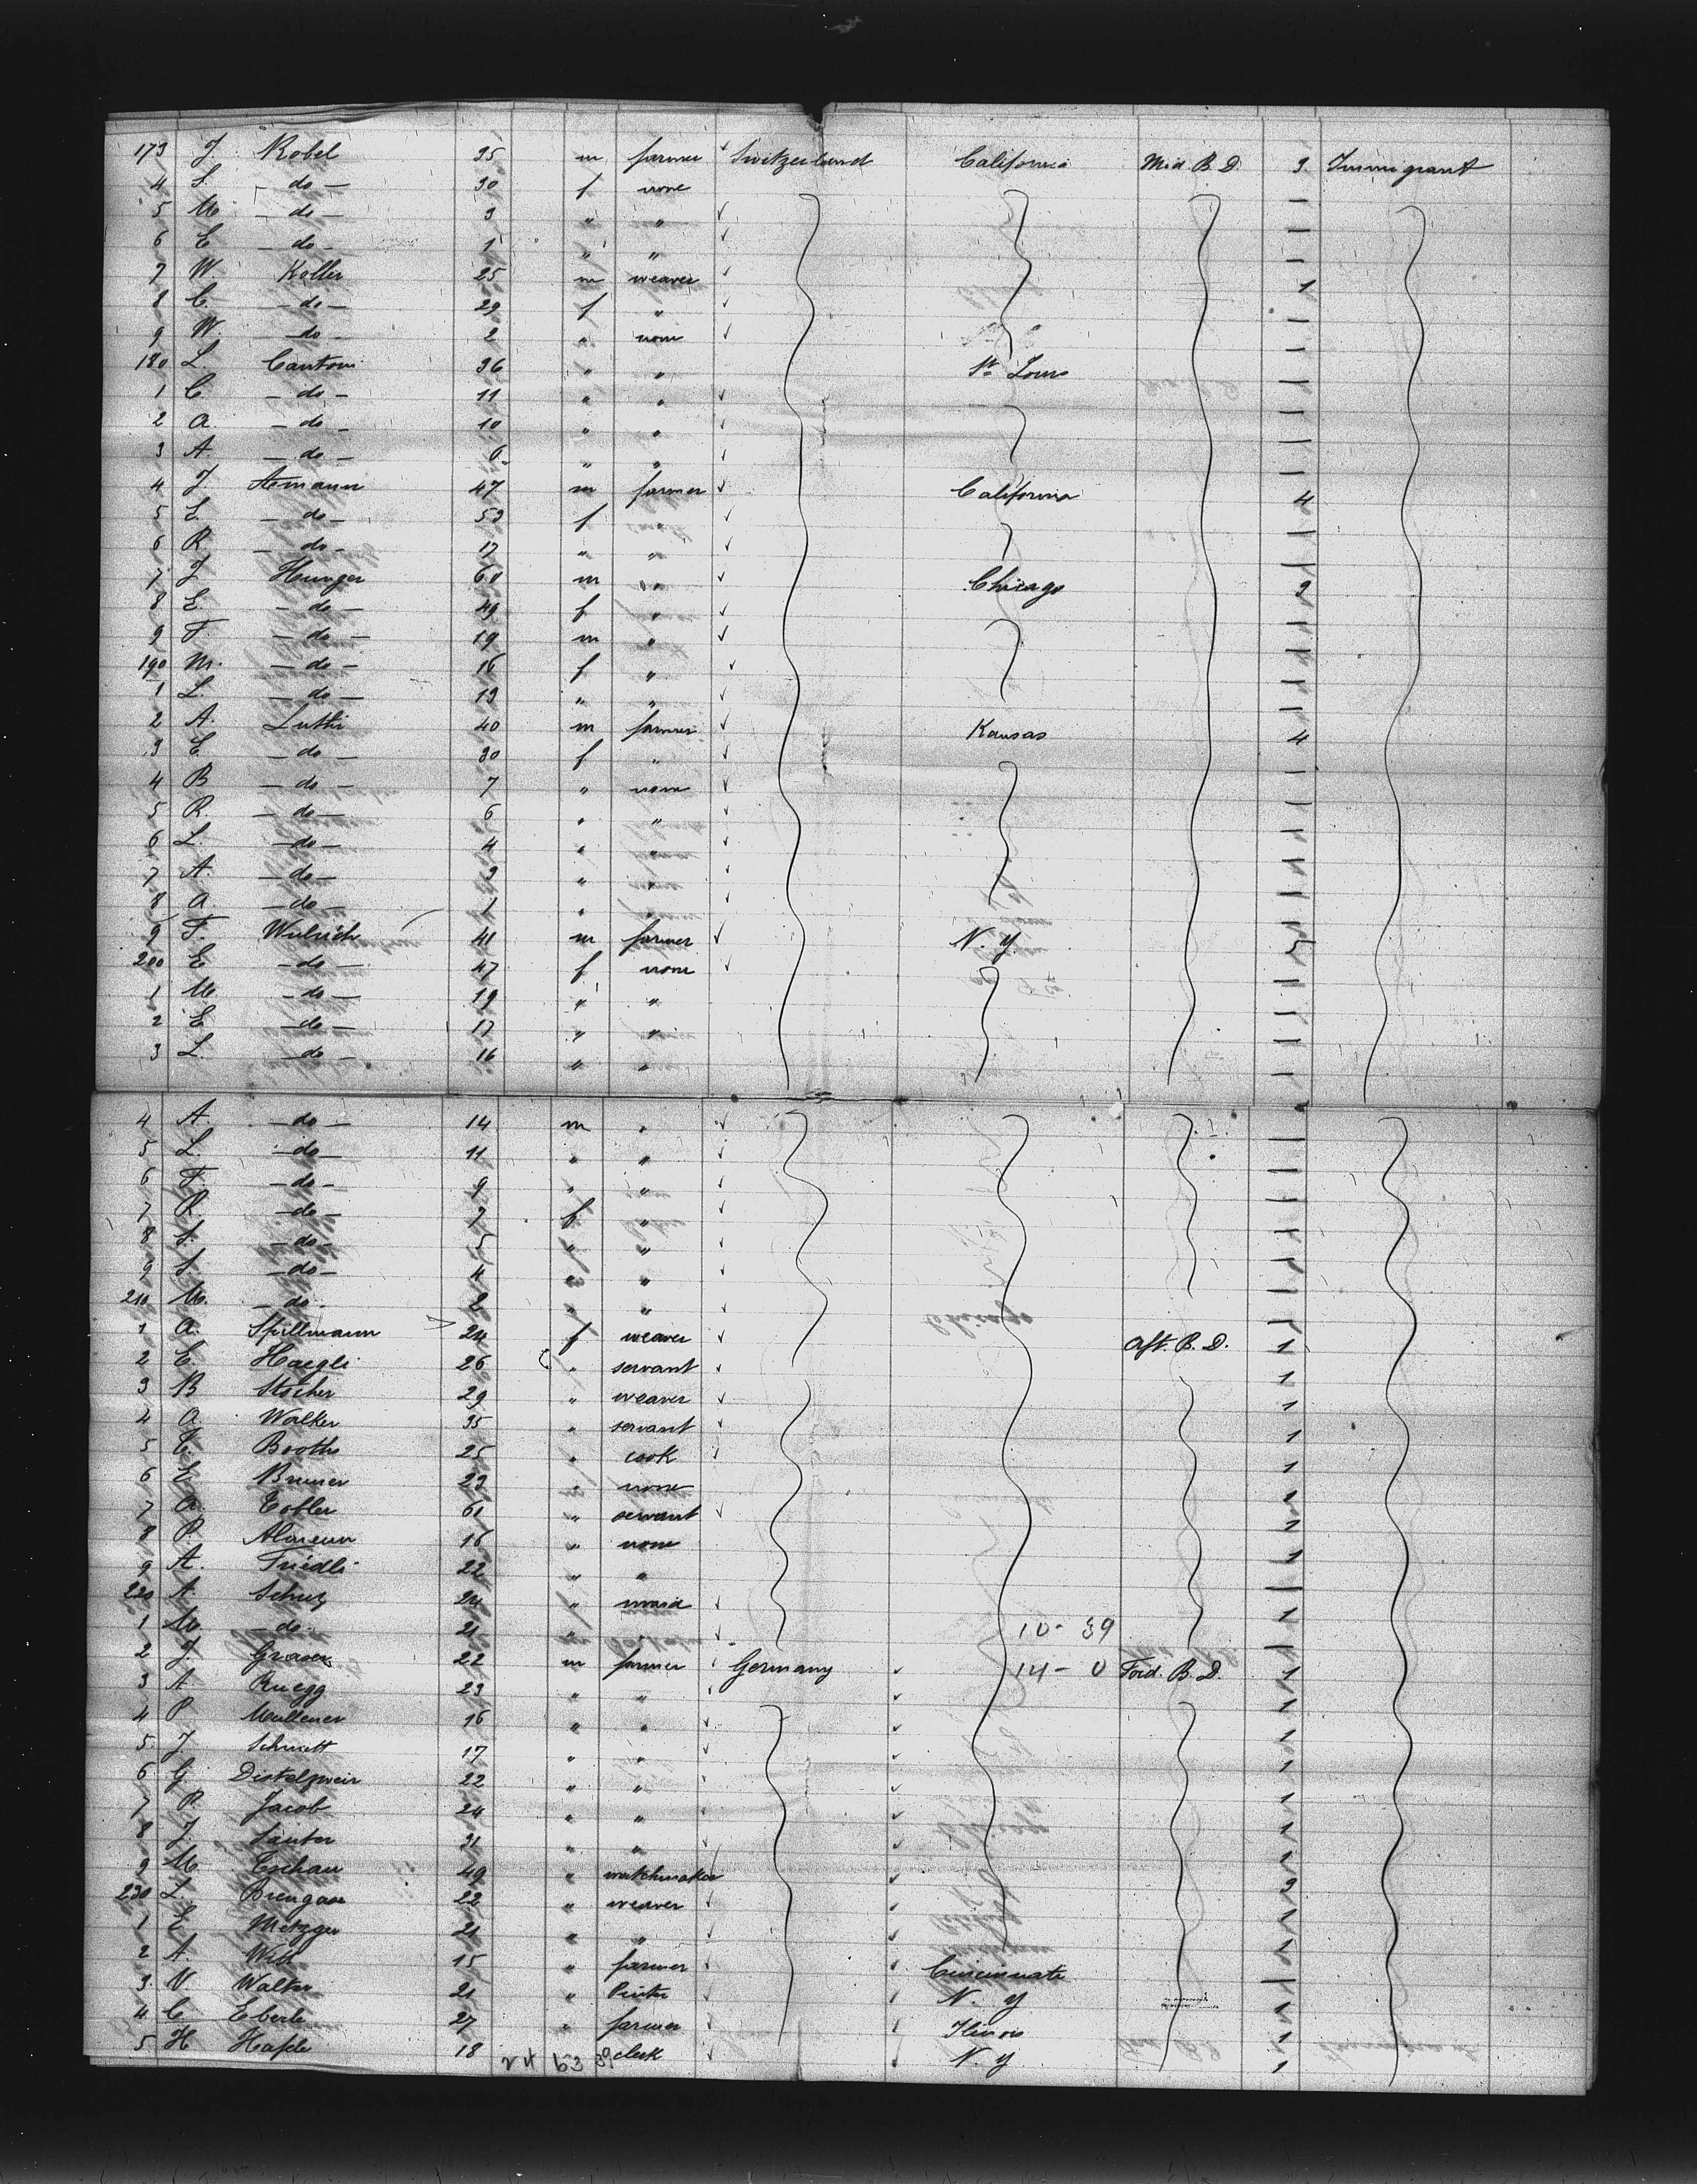 173 J. Kobel 35 m farmer Switzerland California Mid. B. D. 3 Immigrant
4 S. - do - 30 f none
5 M - do - 3 " "
6 E - do - 1 " "
7 W. Keller 25 m weaver 1
8 C. - do - 29 f "
9 W. - do - 2 " none
180 L. Cantoni 36 " " St. Louis
1 C - do - 11 " "
2 A. - do - 10 " "
3 A. - do - 6 " "
4 J Asmann 47 m farmer California 4
5 E. - do - 53 f "
6 R - do - 17 " "
7 J Hunger 60 m " Chicago 2
8 E. - do - 49 f "
9 F. - do - 19 m "
190 M. - do - 16 f "
1 L. - do - 13 " "
2 A. Luthi 40 m farmer Kansas 4
3 E - do - 30 f "
4 B - do - 7 " none
5 R. - do - 6 " "
6 L. - do - 4 " "
7 A. - do - 3 " "
8 A. - do - 1 " "
9 F. Wulrich 41 m farmer N. Y. 5
200 E - do - 47 f none
1 M - do - 19 " "
2 E - do - 17 " "
3 L. - do - 16 " "
4 A. - do - 14 m "
5 L. - do - 11 " "
6 F. - do - 9 " "
7 R. - do - 7 f "
8 S. - do - 5 " "
9 S. - do - 4 " "
210 M. - do - 2 " "
1 A. Spillmann 24 f weaver Aft. B. D. 1
2 E. Haegli 26 " servant 1
3 B Stocher 29 " weaver 1
4 A. Walker 35 " servant 1
5 E. Booths 25 " cook 1
6 E. Bruner 23 " none 1
7 A. Tobler 61 " servant 1
8 P. 16 " none 1
9 A. Friedli 22 " "
220 A. Schuz 24 " maid 1
1 M - do - 21 " " 10 - 39
2 J. Graser 22 m farmer Germany 14 - 0 Ford. B. D. 1
3 A Ruegg 23 " " 1
4 P. Mullener 16 " " 1
5 J Schmett 17 " " 1
6 G Distelzweir 22 " " 1
7 R. Jacob 24 " " 1
8 J. Sauter 31 " " 1
9 M. Eschau 49 " watchmaker 2
230 L. 22 " weaver 1
1 E. Metzger 21 " " 1
2 A. Witt 15 " farmer Cincinnati
3 V Walter 21 " N. Y 1
4 C Eberle 27 " farmer Ilinois 1
5 H Hafele 18 clerk N. Y 1
24 63 39